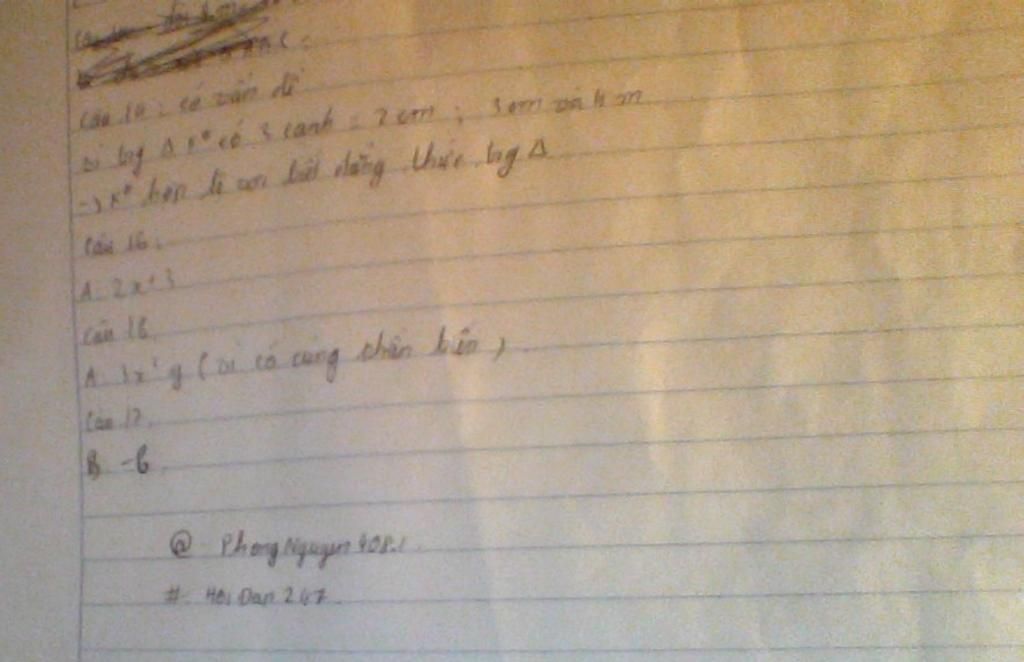 Câu 14: có vấn đề
Vì trg Δ K° có 3 cạnh = 2 cm; 3 cm và 4 m
→ K° hợp lí với bất đẳng thức trg Δ
Câu 16:
A. 2x + 3
Câu 18
A. 3x² y (vì có cùng phần biến)
Câu 17.
B. -6
@ PhongNguyen408.1
# HoiDan 247